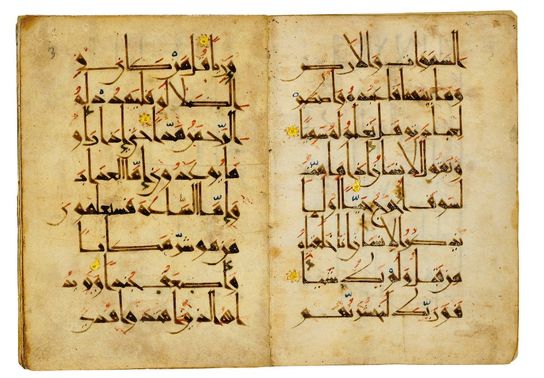 السموات والارض
وما بينهما فاعبده واصطبر
لعبدته هل تعلم له سميا
ويقول الانسن اءذا ما مت
لسوف اخرج حيا اولا
يذكر الانسن انا خلقنه
من قبل ولم يك شيا
فوربك لنحشرنهم
وريا قل من كان في
الضللة فليمدد له
الرحمن مدا حتى اذا راوا
ما يوعدون اما العذاب
واما الساعة فسيعلمون
من هو شر مكانا
واضعف جندا ويزيد
الله الذين اهتدوا